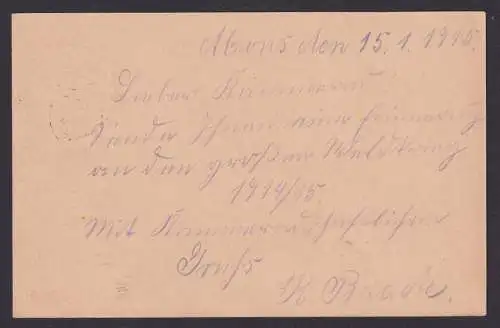 Mons den 15.1.1915.
Lieber Kammerad
Sende Ihnen eine Erinnerung
an den großen Weltkrieg
1914/15.
Mit Kammeradschaftlichem
Gruß
K